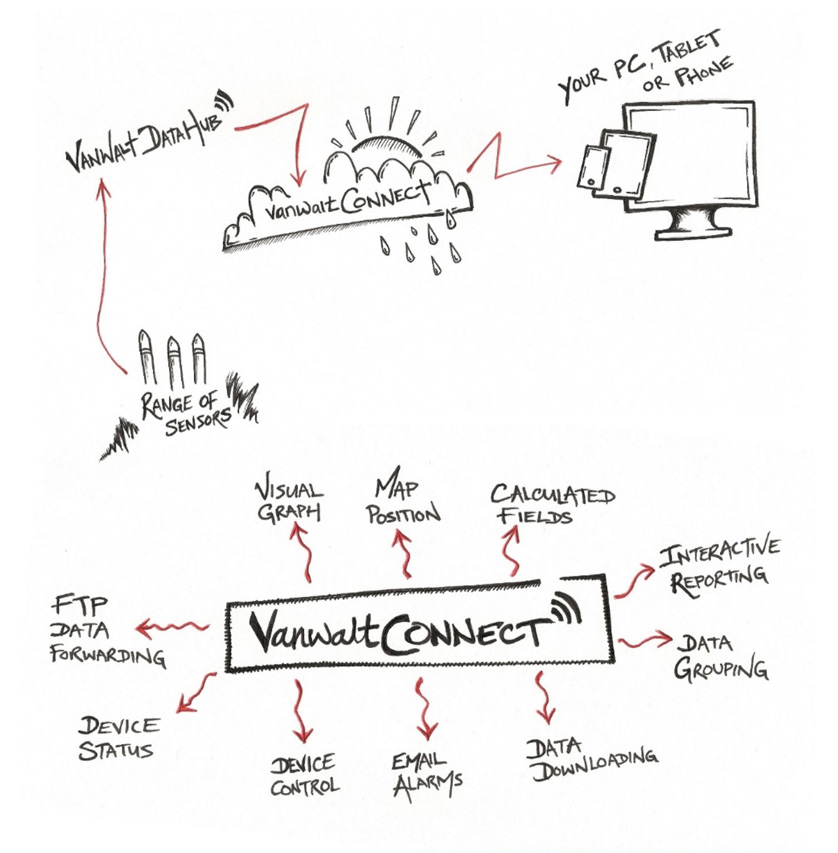 YOUR PC, TABLET
OR PHONE
VANWALT DATAHUB
VanwaltCONNECT
RANGE OF
SENSORS
VISUAL
GRAPH
MAP
POSITION
CALCULATED
FIELDS
INTERACTIVE
REPORTING
FTP
DATA
FORWARDING
VanwaltCONNECT
DATA
GROUPING
DEVICE
STATUS
DEVICE
CONTROL
EMAIL
ALARMS
DATA
DOWNLOADING